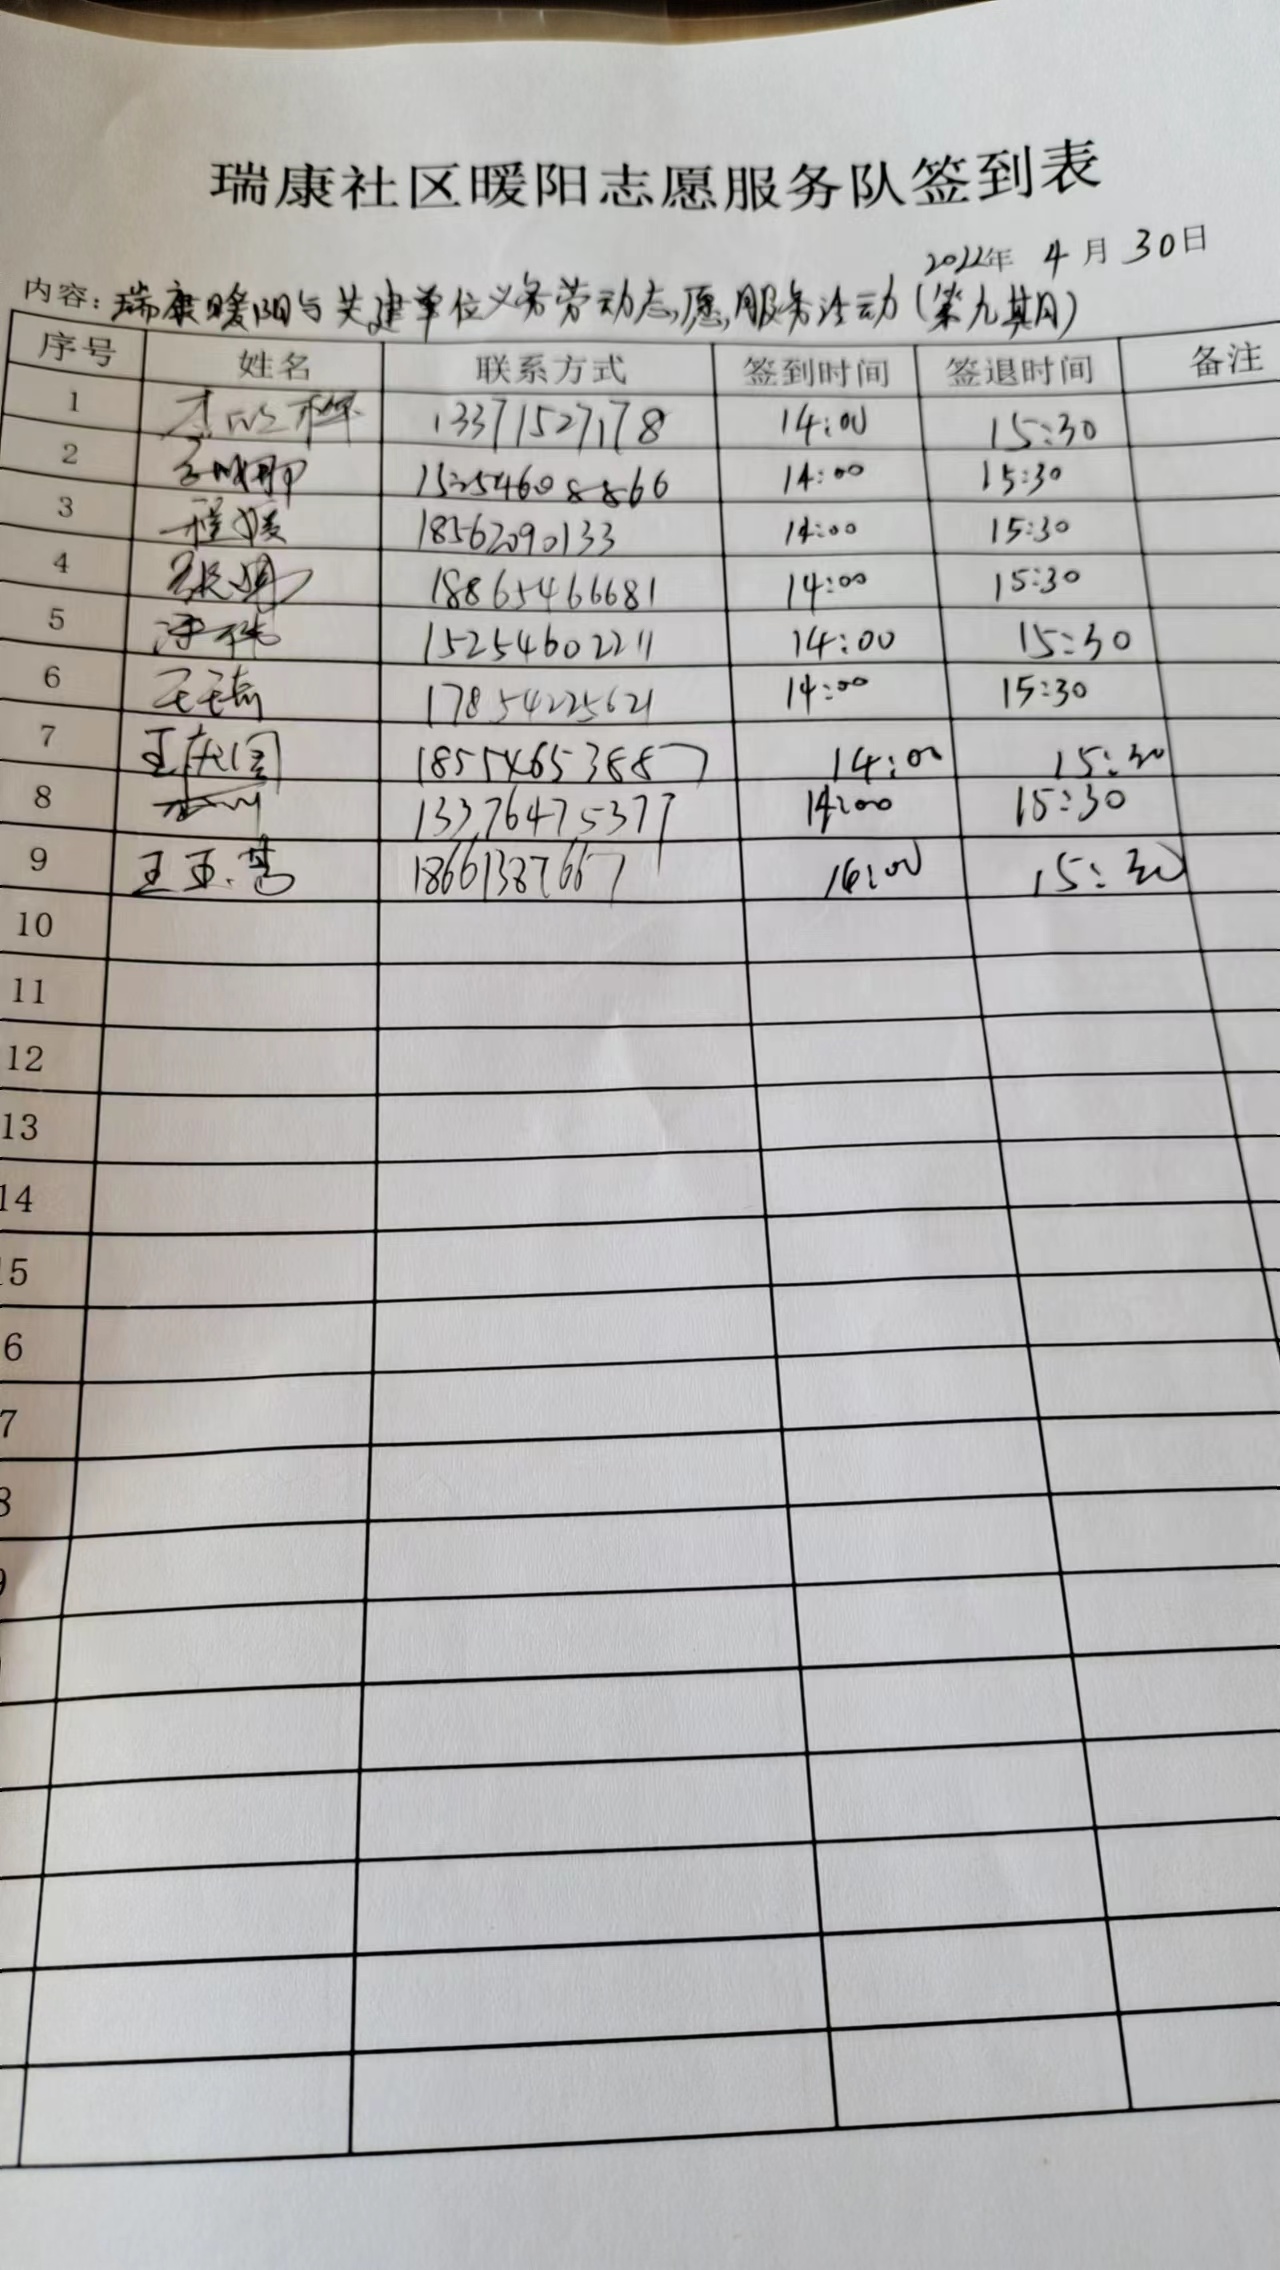 瑞康社区暖阳志愿服务队签到表
2022年 4月30日
内容：瑞康暖阳与共建单位义务劳动志愿服务活动（第九期）
序号 姓名 联系方式 签到时间 签退时间 备注
1 13371527178 14:00 15:30
2 14:00 15:30
3 程媛 18562090133 14:00 15:30
4 18865466681 14:00 15:30
5 15254602211 14:00 15:30
6 17854225621 14:00 15:30
7 18554653887 14:00 15:30
8 13376475377 14:00 15:30
9 18661387667 15:30
10
11
12
13
14
15
6
7
8
9